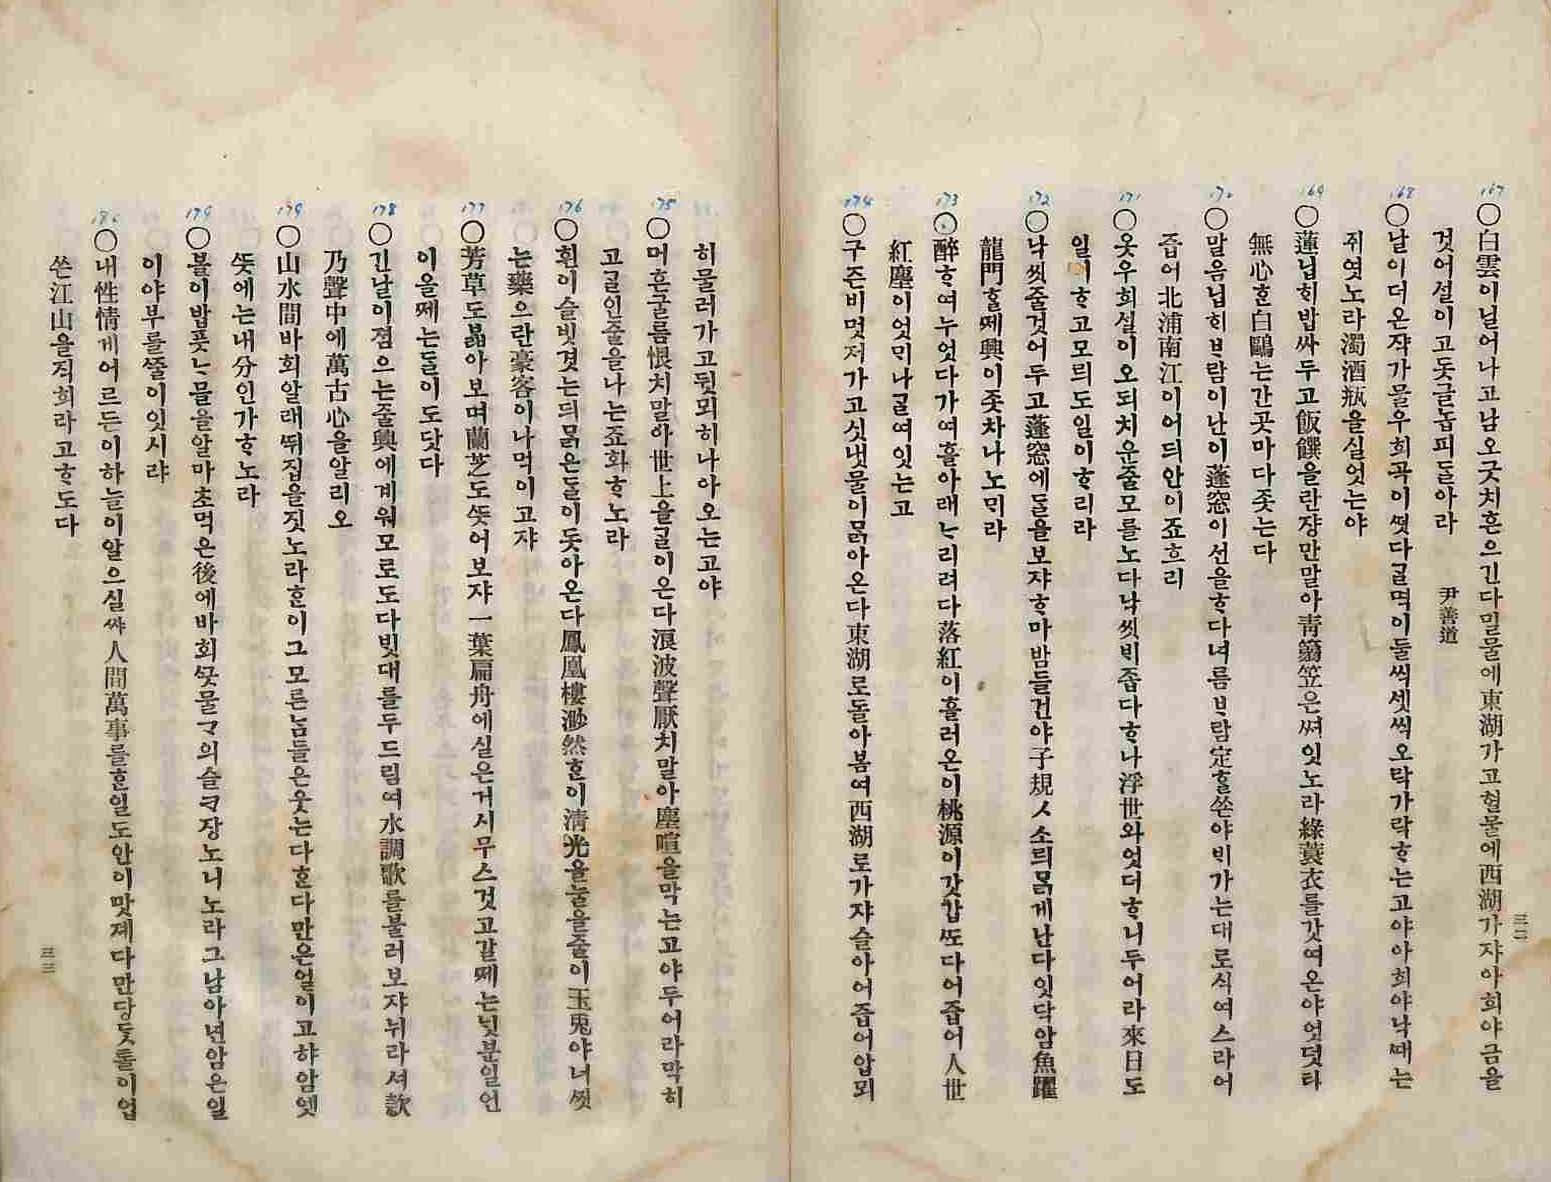 167
○白雲이닐어나고남오긋치흔으긴다밀물에東湖가고혈물에西湖가쟈아희야금을
것어설이고돗글놉피ᄃᆞᆯ아라 尹善道
168
○날이더온쟉가믈우희곡이ᄯᅥᆺ다ᄀᆞᆯ며이둘씩셋씩오락가락ᄒᆞ는고야아희야낙ᄯᅢ는
쥐엿노라濁酒瓶을실엇는야
169
○蓮닙희밥싸두고飯饌을란쟝만말아靑篛笠은써잇노라綠蓑衣를갓여온야엇덧타
無心ᄒᆞᆫ白鷗는간곳마다좃는다
170
○말음닙희ᄇᆞ람이난이蓬窓이선을ᄒᆞ다녀름ᄇᆞ람定ᄒᆞᆯᄯᅩᆫ야ᄇᆡ가는대로식여스라어
즙어北浦南江이어듸안이죠흐리
171
○옷우희설이오되치운줄모를노다낙씻ᄇᆡ좁다ᄒᆞ나浮世와엇더ᄒᆞ니두어라來日도
일이ᄒᆞ고모릐도일이ᄒᆞ리라
172
○낙씻줄것어두고蓬窓에ᄃᆞᆯ을보쟈ᄒᆞ마밤들건야子規ㅅ소릐ᄆᆞᆰ게난다잇닥암魚躍
龍門ᄒᆞᆯᄯᅦ興이좃차나노ᄆᆡ라
173
○醉ᄒᆞ여누엇다가여흘아래ᄂᆞ리려다落紅이흘러온이桃源이갓갑ᄯᅩ다어즙어人世
紅塵이엇ᄆᆡ나ᄀᆞᆯ여잇는고
174
○구즌비멋저가고싯냇물이ᄆᆞᆰ아온다東湖로돌아봄여西湖로가쟈슬아어즙어압뫼
히물러가고뒷뫼히나아오는고야
175
○머흔굴름恨치말아世上을ᄀᆞᆯ이온다浪波聲厭치말아塵喧을막는고야두어라막히
고ᄀᆞᆯ인줄을나는죠화ᄒᆞ노라
176
○흰이슬빗겻는듸ᄆᆞᆰ은ᄃᆞᆯ이돗아온다鳳凰樓渺然ᄒᆞᆫ이淸光을눌을줄이玉兎야너ᄶᅵᆺ
는藥으란豪客이나먹이고쟈
177
○芳草도ᄇᆞᆲ아보며蘭芝도ᄯᅳᆺ어보쟈一葉扁舟에실은거시무스것고갈ᄯᅦ는닛분일언
이올ᄯᅦ는ᄃᆞᆯ이도닷다
178
○긴날이졈으는줄興에계워모로도다빗대를두드림여水調歌를불러보쟈뉘라셔欸
乃聲中에萬古心을알리오
179
○山水間바회알래ᄯᅱ집을짓노라ᄒᆞᆫ이그모른ᄂᆞᆷ들은웃는다ᄒᆞᆫ다만은얼이고햐암엣
ᄯᅳᆺ에는내分인가ᄒᆞ노라
179
○볼이밥풋ᄂᆞ물을알마초먹은後에바회ᄭᅳᆺ물ᄀᆞ의슬ᄏᆞ장노니노라그남아년암은일
이야부를ᄯᅮᆯ이잇시랴
180
○내性情게어르든이하늘이알으실ᄊᆞ人間萬事를ᄒᆞᆫ일도안이맛졔다만당ᄃᆞ톨이업
쓴江山을직희라고ᄒᆞ도다
三二
三三